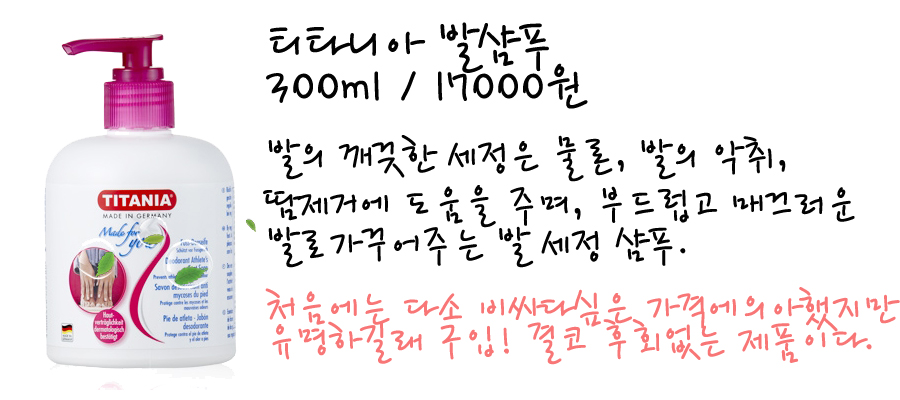 티타니아 발샴푸
300ml / 17000원
발의 깨끗한 세정은 물론, 발의 악취,
땀제거에 도움을 주며, 부드럽고 매끄러운
발로가꾸어주는 발 세정 샴푸.
처음에는 다소 비싸다싶은 가격에의아했지만
유명하길래 구입! 결코 후회없는 제품이다.
TITANIA
MADE IN GERMANY
Made for
Deodorant Athlete's
Savon
mycoses du pied
Pie de atleta - Jabón
desodorante
Haut-
verträglichkeit
dermatologisch
bestätigt